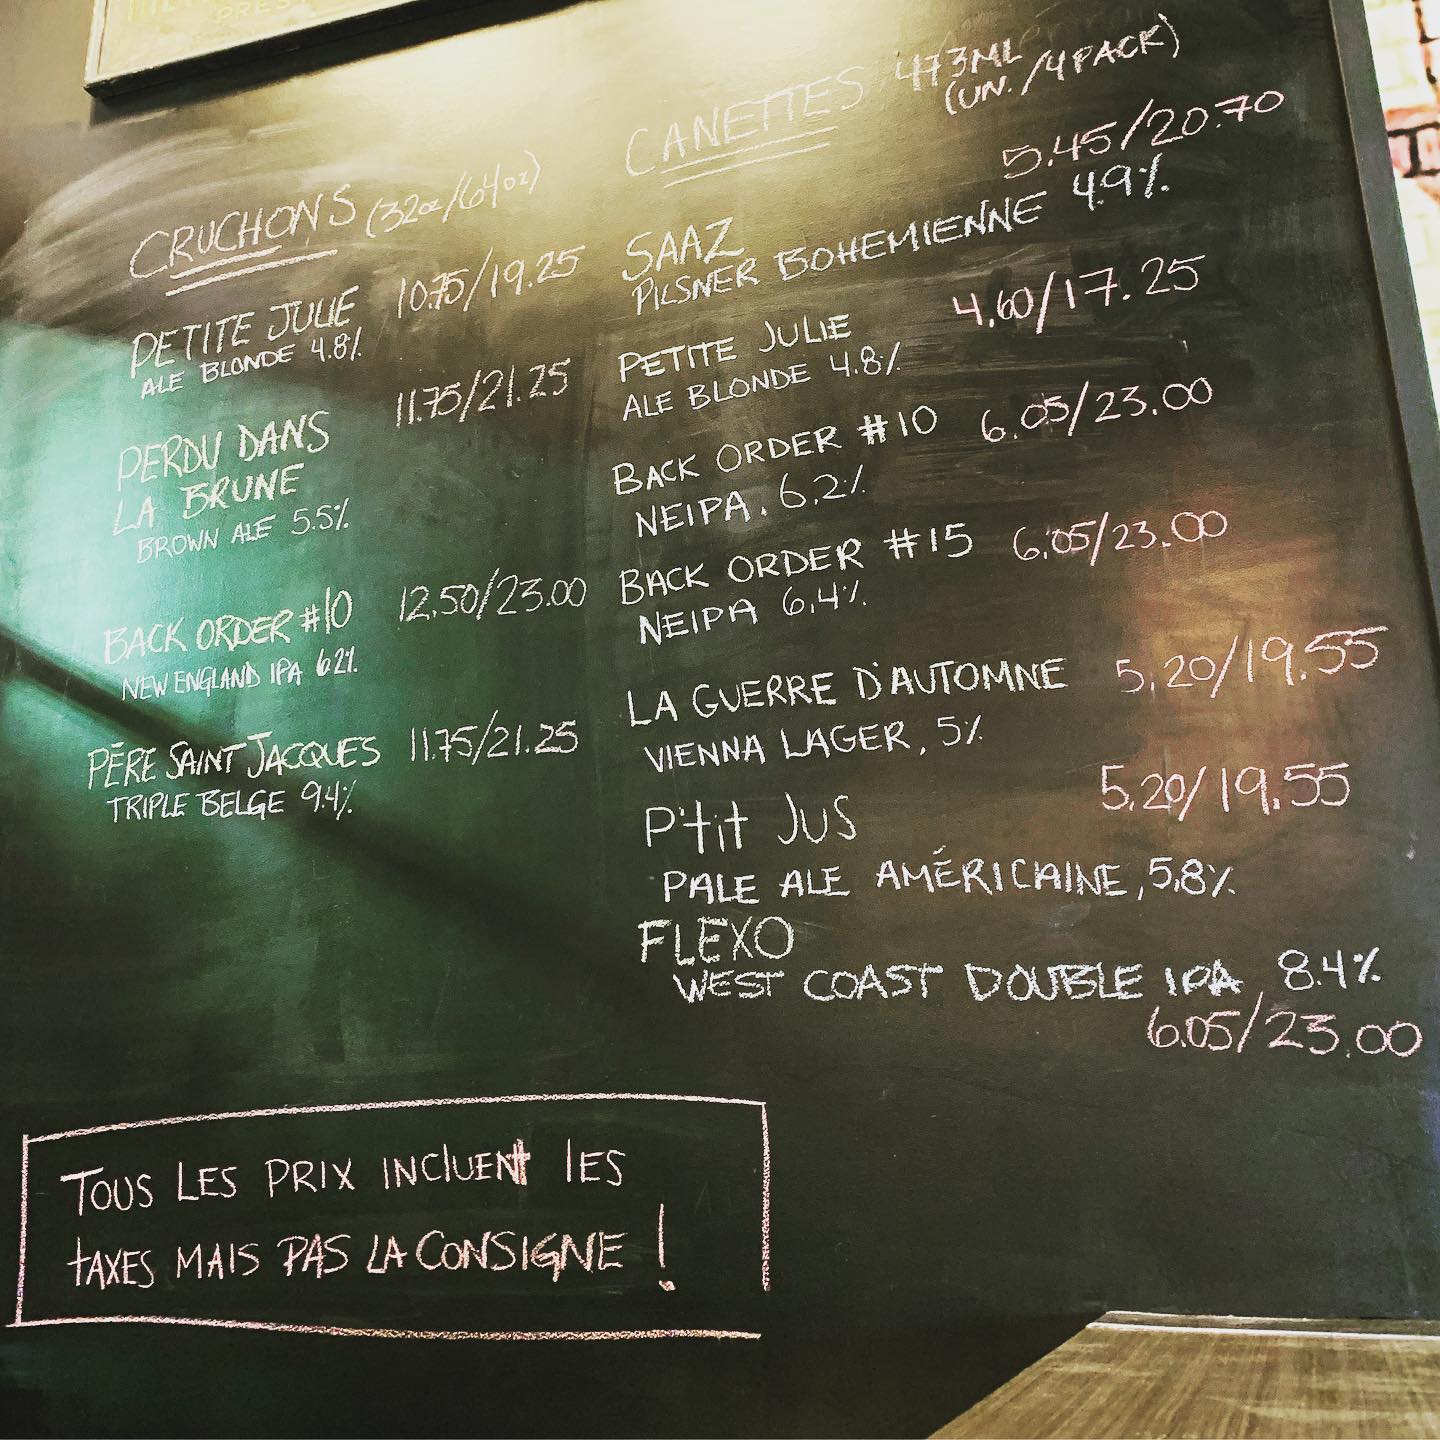 CRUCHONS (32oz/64oz)
PETITE JULIE 10.75/19.25
ALE BLONDE 4.8%
PERDU DANS 11.75/21.25
LA BRUNE
BROWN ALE 5.5%
BACK ORDER #10 12.50/23.00
NEW ENGLAND IPA 6.2%
PÈRE SAINT JACQUES 11.75/21.25
TRIPLE BELGE 9.4%
CANETTES 473ML
(UN./4PACK)
SAAZ 5.45/20.70
PILSNER BOHEMIENNE 4.9%
PETITE JULIE 4.60/17.25
ALE BLONDE 4.8%
BACK ORDER #10 6.05/23.00
NEIPA. 6.2%
BACK ORDER #15 6.05/23.00
NEIPA 6.4%
LA GUERRE D'AUTOMNE 5.20/19.55
VIENNA LAGER, 5%
P'tit JUS 5.20/19.55
PALE ALE AMÉRICAINE, 5.8%
FLEXO
WEST COAST DOUBLE IPA 8.4%
6.05/23.00
TOUS LES PRIX INCLUENT LES
TAXES MAIS PAS LA CONSIGNE !